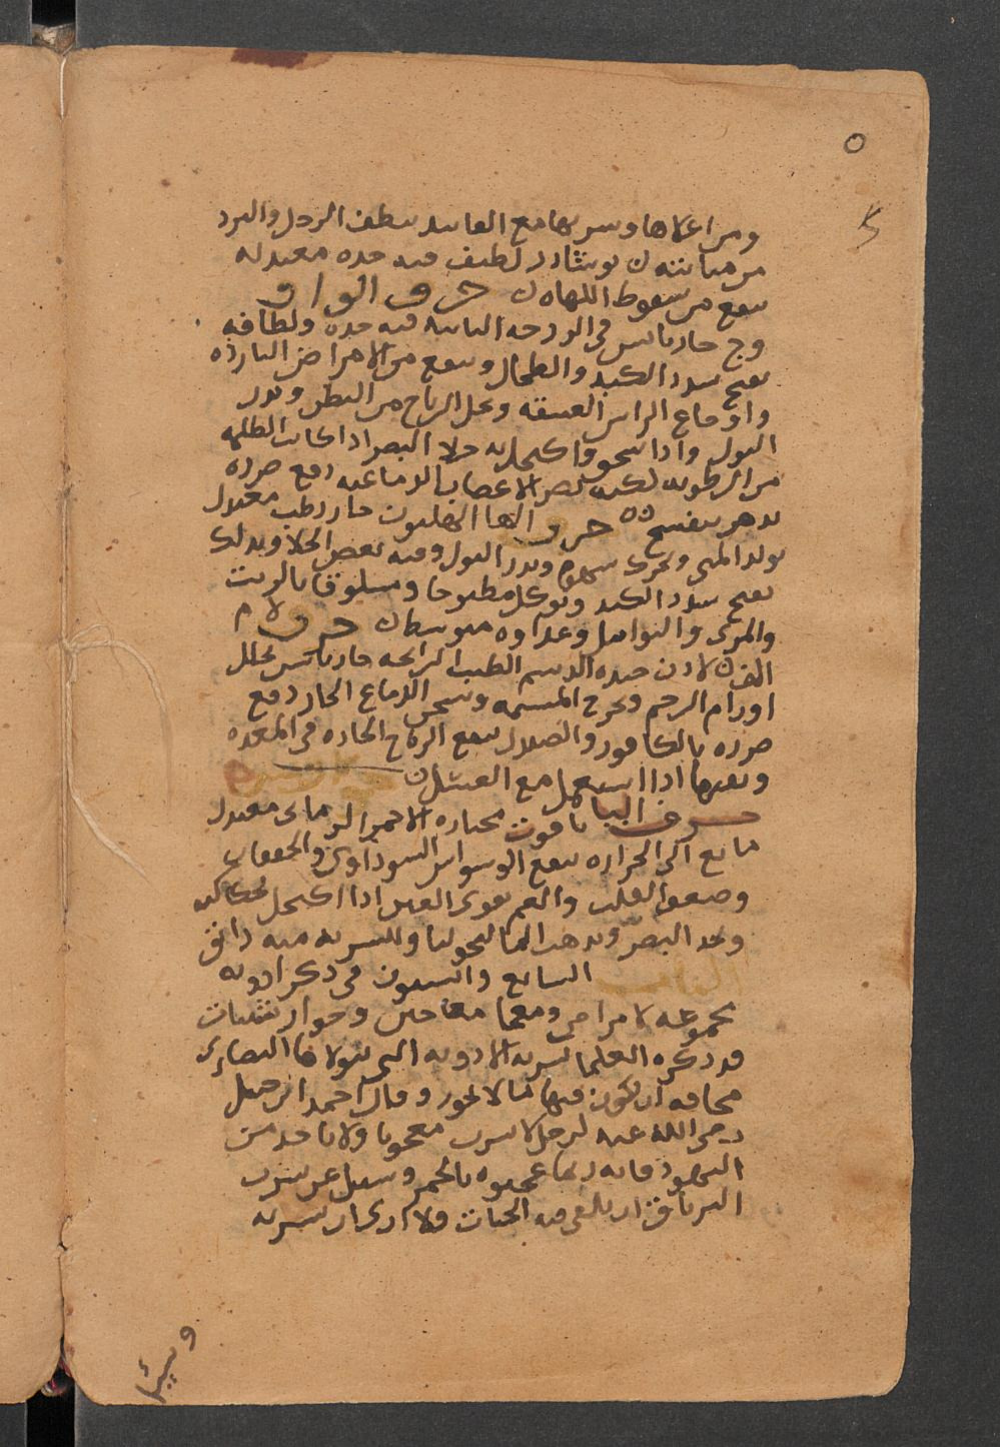 ٥
ومن اعلاها وشربها مع الفانيد ينظف الرحل والبرد
من مباشته ن نوشادر لطيف فيه حده معتدله
ينفع من سقوط اللهاه ن حرف الواو
وج حار يابس في الدرجه الثانيه فيه حده ولطافه
يفتح سدد الكبد والطحال وينفع من الامراض البارده
واوجاع الراس العتيقه ويحل الرياح من البطن ويدر
البول واذا سحق واكتحل به جلا البصر اذا كانت الظلمه
من الرطوبه لكنه يضر الاعصاب الدماغيه دفع ضرره
بدهن بنفسج حرف الها الهليون حار رطب معتدل
يولد المني ويحرك شهوه ويدر البول وفيه بعض الجلا وبذلك
يفتح سدد الكبد ويوكل مطبوخا ومسلوقا بالزيت
والمري والتوابل وغداوه متوسط ن حرف لام
الف ن لادن جيده الدسم الطيب الرايحه حار يابس يحلل
اورام الرحم ويخرج المشيمه ويسخن الدماغ الحار دفع
ضرره بالكافور والصندل ينفع الرياح الحاده في المعده
وغيرها اذا استعمل مع العسل ن
حرف اليا ياقوت مختاره الاحمر الرماني معتدل
مايع الى الحراره ينفع الوسواس السوداوي والخفقان
وضعف القلب والغم يقوي العين اذا اكتحل بحكاكته
ويحد البصر ويذهب الماليخوليا وللشربه منه دانق
الباب السابع والتسعون في ذكر ادويه
مجموعه لامراض ومعها معاجين وجوارشنات
قد ذكره العلما لشربه الادويه التي يتولاها النصارى
مخافه ان يكون فيها ما لا يجوز وقال احمد ابن حنبل
رضي الله عنه لرجل لا تشرب معجونا ولا تاخد من
اليهود فانه ربما عجنوه بالخمر وسيل عن شرب
الترياق ان يلقى فيه الحيات ولا ارى ان تشربه
وشيئا